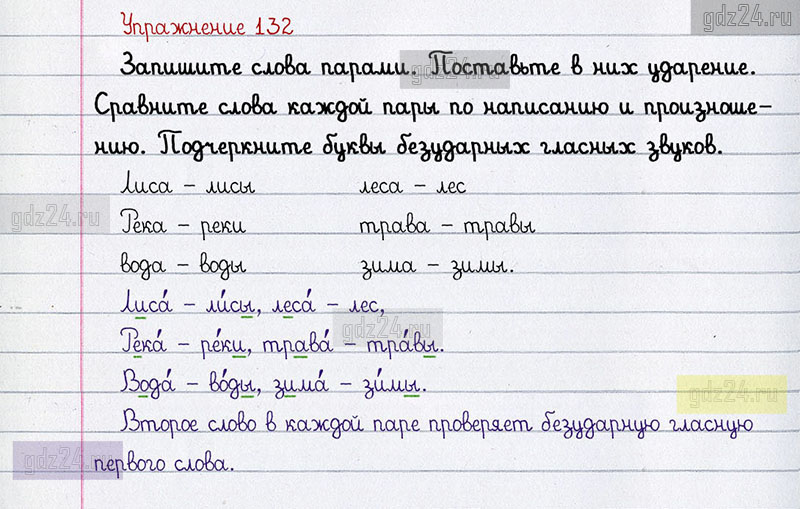 gdz24.ru
Упражнение 132
Запишите слова парами. Поставьте в них ударение.
gdz24.ru
Сравните слова каждой пары по написанию и произноше-
нию. Подчеркните буквы безударных гласных звуков.
Лиса – лисы леса – лес
gdz24.ru
Река – реки трава – травы
вода – воды зима – зимы.
Лиса́ – ли́сы, леса́ – лес,
gdz24.ru
Река́ – ре́ки, трава́ – тра́вы.
Вода́ – во́ды, зима́ – зи́мы.
gdz24.ru
Второе слово в каждой паре проверяет безударную гласную
gdz24.ru
первого слова.